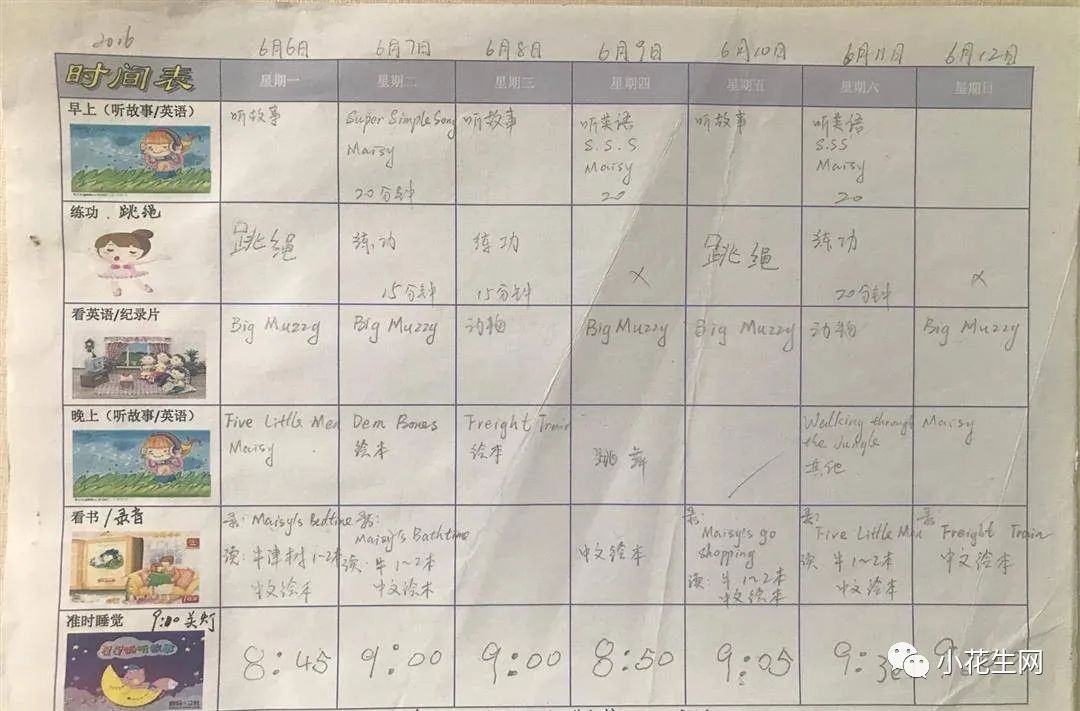 2016 6月6日 6月7日 6月8日 6月9日 6月10日 6月11日 6月12日
时间表 星期一 星期二 星期三 星期四 星期五 星期六 星期日
早上（听故事/英语）
听故事
Super Simple Song
Maisy
20分钟
听故事
听英语
S.S.S
Maisy
20
听故事
听英语
S.SS
Maisy
20
练功、跳绳
跳绳
练功
15分钟
练功
15分钟
×
跳绳
练功
20分钟
×
看英语/纪录片
Big Muzzy
Big Muzzy
动物
Big Muzzy
Big Muzzy
动物
Big Muzzy
晚上（听故事/英语）
Five Little Men
Maisy
Dem Bones
绘本
Freight Train
绘本
跳舞
Walking through
the Jungle
其他
Maisy
看书/录音
录：Maisy's Bedtime
读：牛津树1~2本
中文绘本
录：
Maisy's Bathtime
读：牛1~2本
中文绘本
中文绘本
录：
Maisy's go
shopping
读：牛1~2本
中文绘本
录：
Five Little Men
读 牛1~2本
中文绘本
录：
Freight Train
中文绘本
准时睡觉 9:00关灯
8:45
9:00
9:00
8:50
9:05
小花生网